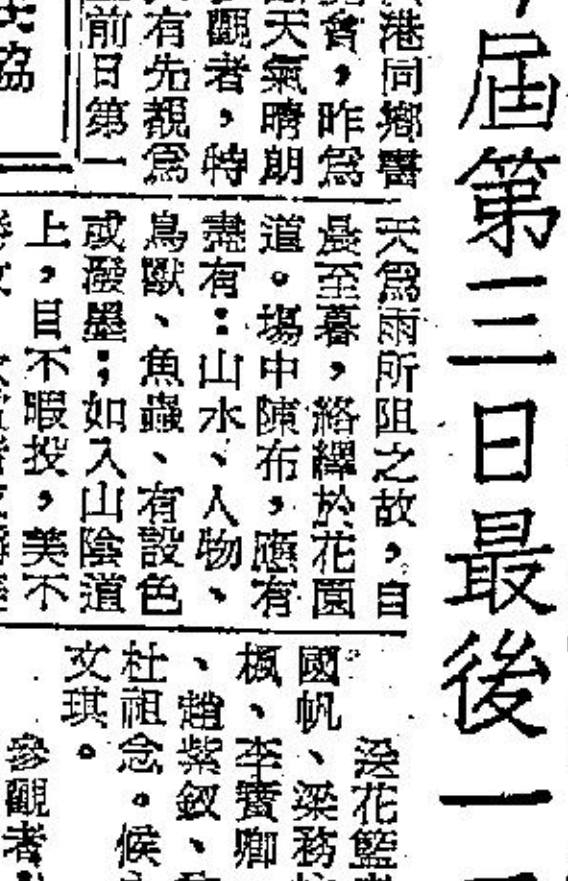 屆第三日最後一
港同鄉書
會，昨爲
天氣晴朗
觀者，特
有先覩爲
前日第一
協
天爲雨所阻之故，自
晨至暮，絡繹於花園
道。場中陳布，應有
盡有：山水、人物、
鳥獸、魚蟲、有設色
或潑墨；如入山陰道
上，目不暇投，美不
送花籃
國帆、梁務
楓、李寶卿
、趙紫釵、
杜祖念。候
文琪。
參觀者